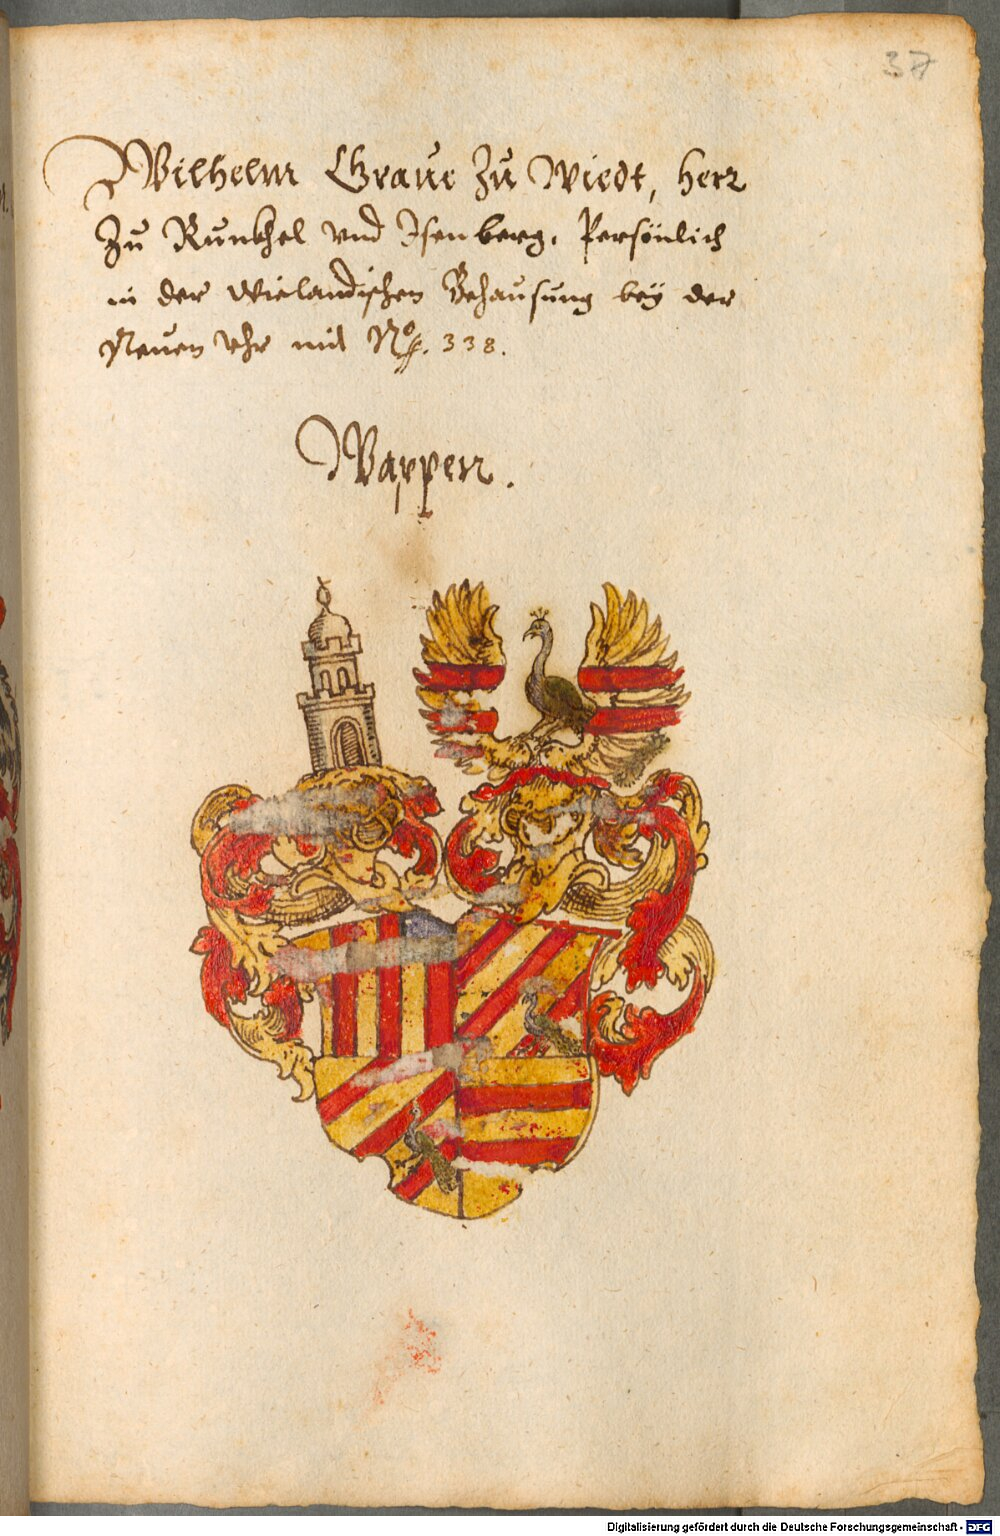 37
Wilhelm Graue zu Wiedt, herr
zu Runkhel vnd Isenberg. Persönlich
in der Wielandischen Behausung bey der
Neuen vhr mit No. 338.
Wappen.
Digitalisierung gefördert durch die Deutsche Forschungsgemeinschaft - DFG